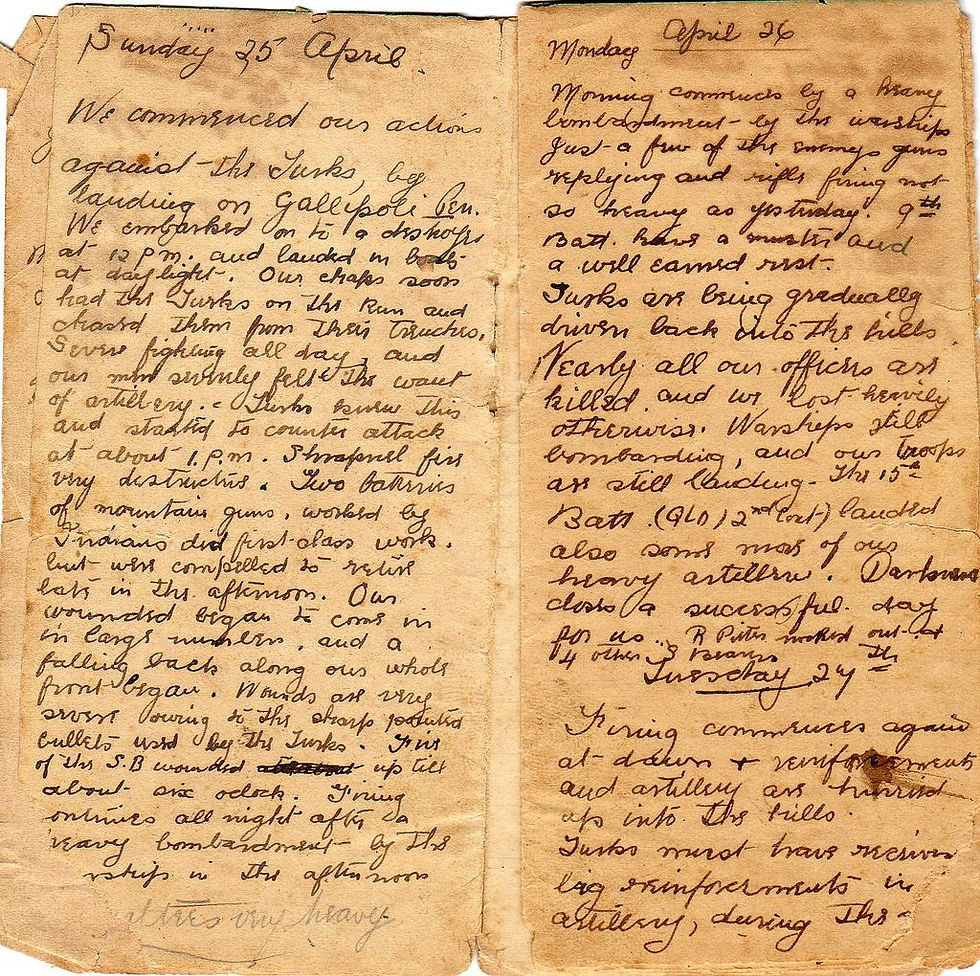 Sunday 25 April.
We commenced our actions
against the Turks, by
landing on Gallipoli Pen.
We embarked on to a destroyer
at 12 P.M. and landed in boats
at daylight. Our chaps soon
had the Turks on the Run and
chased them from their trenches.
Severe fighting all day, and
our men severly felt the want
of artillery. Turks knew this
and started to counter attack
at about 1.P.M. Shrapnel fire
very destructive. Two batteries
of mountain guns, worked by
Indians did first-class work.
but were compelled to retire
late in the afternoon. Our
wounded began to come in
in large numbers, and a
falling back along our whole
front began. Wounds are very
severe owing to the sharp pointed
bullets used by the Turks. Five
of the S.B wounded up till
about six oclock. Firing
ontinues all night after a
heavy bombardment by the
rships in the afternoon
very heavy.
Monday April 26
Morning commences by a heavy
bombardment by the warships
Just a few of the enemys guns
replying and rifle firing not
so heavy as yesterday. 9th
Batt. have a muster and
a well earned rest.
Turks are being gradually
driven back into the hills.
Nearly all our officers are
killed and we lost heavily
otherwise. Warships still
bombarding, and our troops
are still landing. The 15th
Batt. (QLD) 2nd Cont) landed
also some more of our
heavy artillery. Darkness
closes a successful. day
for us. R Peter nocked out +
4 other S Bearers
Tuesday 27th
Firing commences again
at dawn + reinforcements
and artillery are hurried
up into the hills.
Turks must have receive
big reinforcements in
artillery, during the